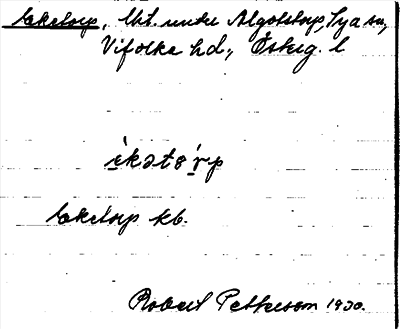 Eketorp, lht. under Algotstorp, Sya sn,
Vifolka hd., Östug. l
ìkətór̥p
Eketorp kb.
Robert Pettersson 1930.